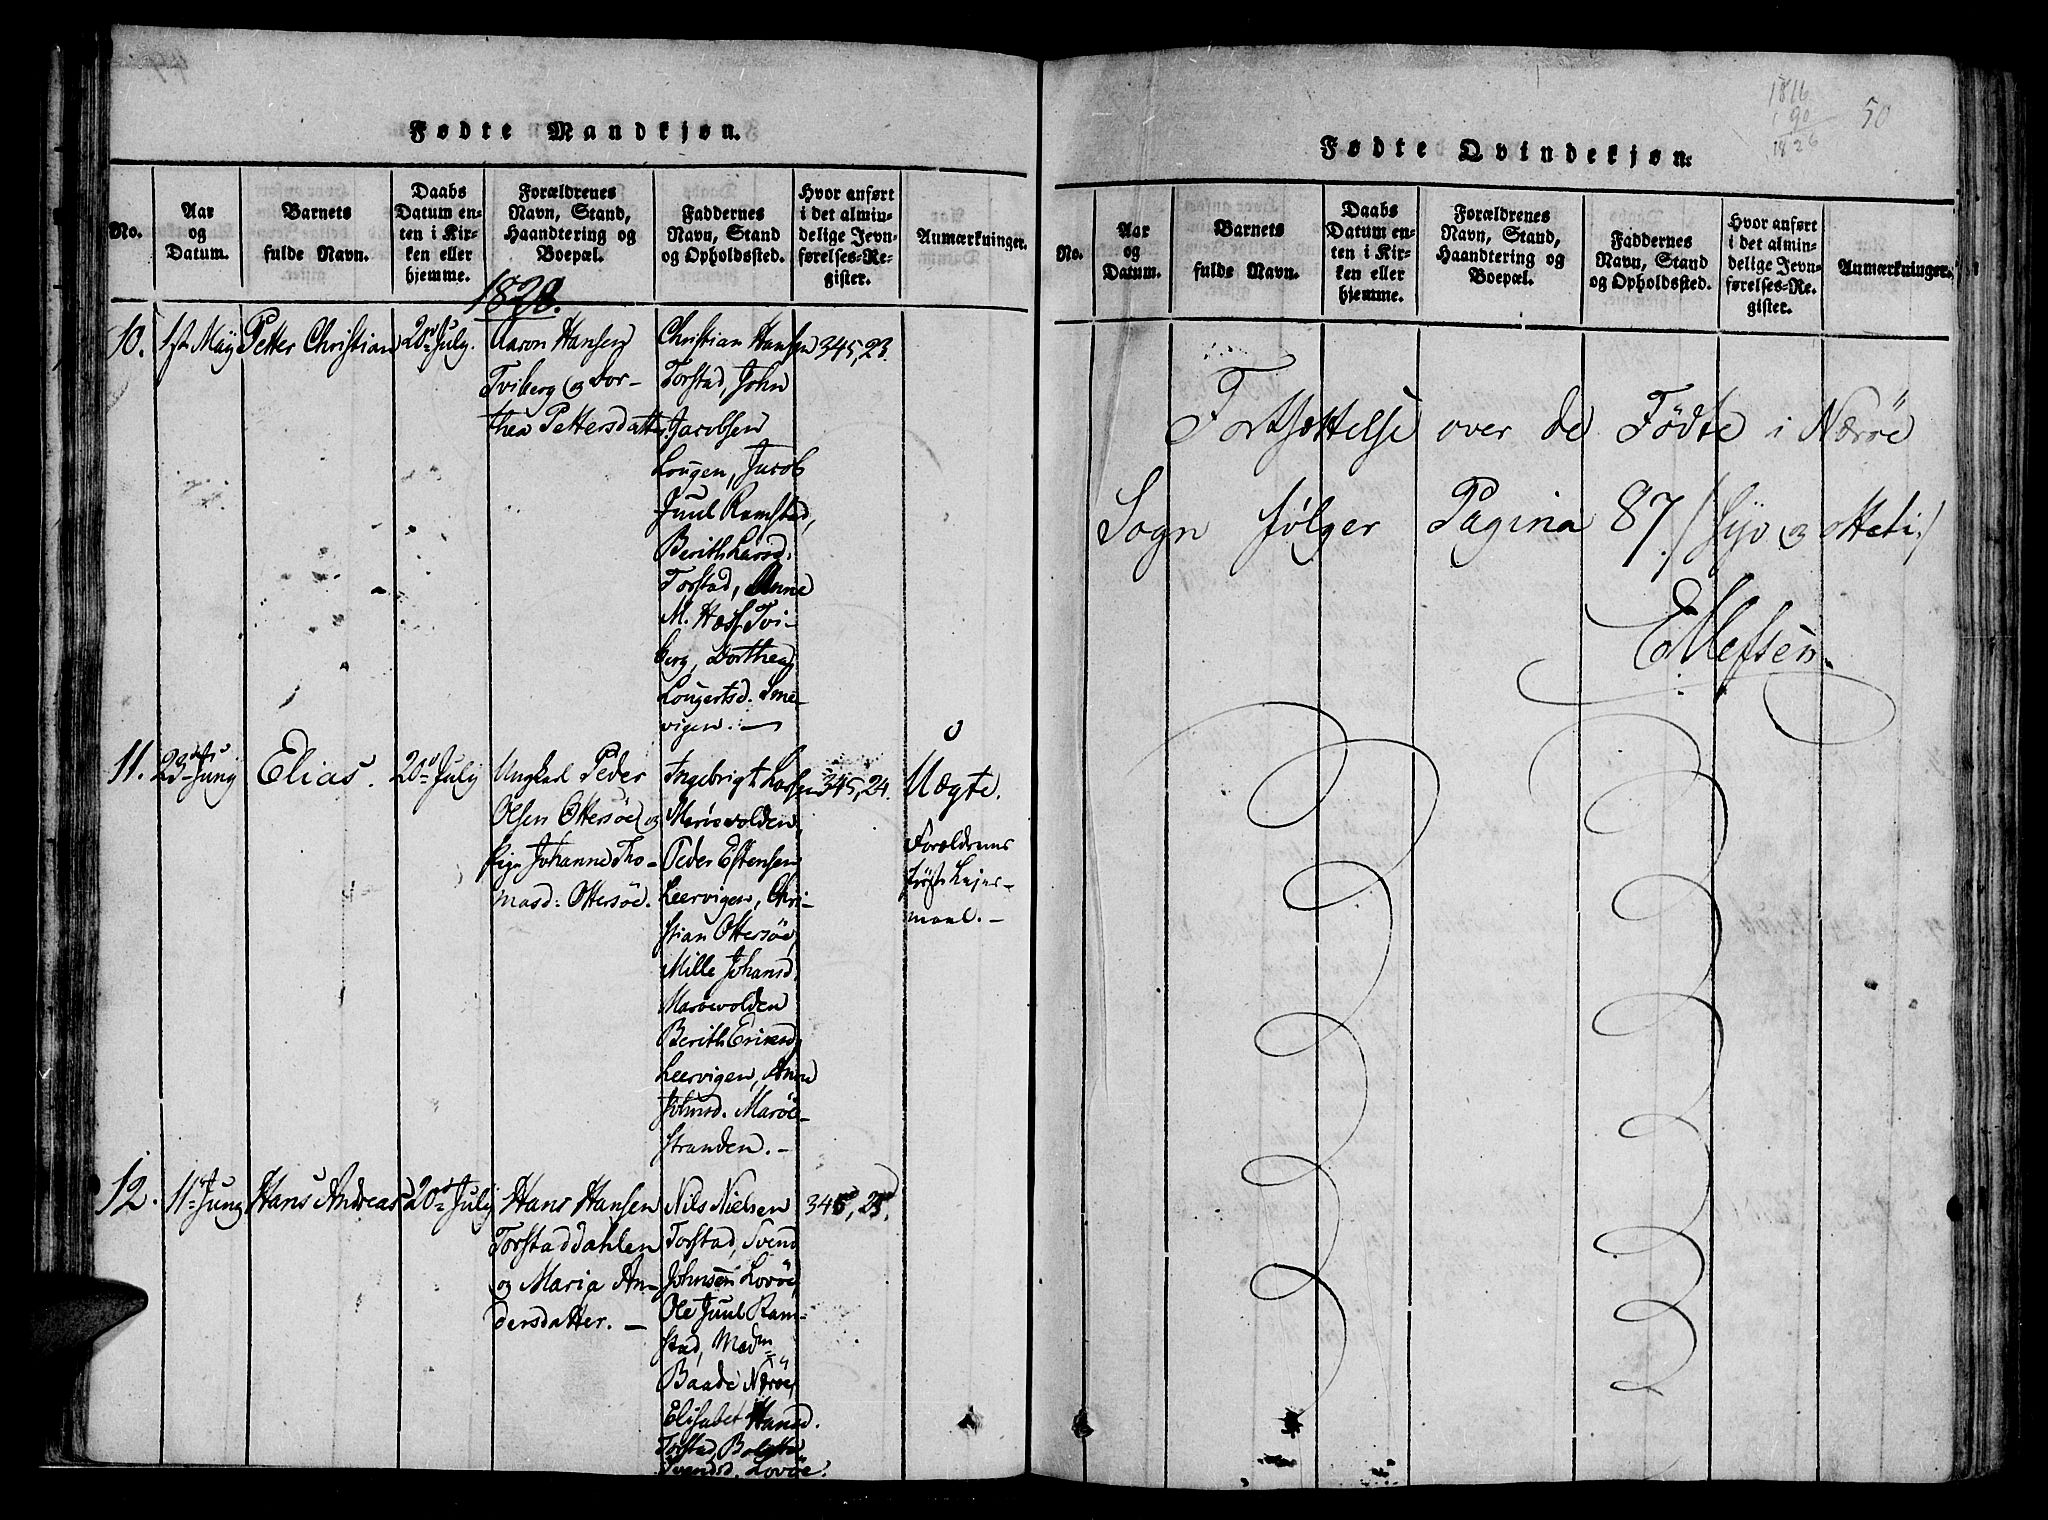 Fødte Mandkjøn.
No.
Aar
og
Datum.
Barnets
fulde Navn.
Daabs
Datum en-
ten i Kir-
ken eller
hjemme.
Forældrenes
Navn, Stand,
Haandtering og
Boepæl.
Faddernes
Navn, Stand
og Opholdssted.
Hvor anført
i det almin-
delige Jevn-
førelses-Re-
gister.
Anmærkninger.
10.
1ste May
Petter Christian
20de July.
Aaron Hansen
Tviberg og Dor-
thea Pettersdatter
Christian Hansen
Torstad, John
Jacobsen
Lougen, Jacob
Juul Ramstad,
Berith Larsd.
Torstad, Anne
M. Hass Tvi-
berg, Dorthea
Lougertsd. Sme-
vigen.
345, 23.
11.
23de Juny
Elias.
20de July
Ungkarl Peder
Olsen Ottersøe og
Pige Johanne Tho-
masd: Ottersøe.
Ingebrigt Larsen
Marøevolden,
Peder Estensen
Leervigen, Chri-
stian Ottersøe,
Mille Johansd.
Marøevolden
Berith Ericsd.
Leervigen, Anne
Johnsd. Marøe-
stranden.
345, 24.
Uægte.
Forældrenes
første Leier-
maal.
12.
11te Juny
Hans Andreas
20de July
Hans Hansen
Torstaddahlen
og Maria An-
dersdatter.
Nils Nielsen
Torstad, Svend
Johnsen Lovøe,
Ole Juul Ram-
stad, Madm
Baade Nærøe,
Elisabet Hansd.
Torstad,
Svendsd. Lovøe.
345, 25.
1816
90
1826
50
Fødte Qvindekjøn.
No.
Aar
og
Datum.
Barnets
fulde Navn.
Daabs
Datum en-
ten i Kir-
ken eller
hjemme.
Forældrenes
Navn, Stand,
Haandtering og
Boepæl.
Faddernes
Navn, Stand
og Opholdssted.
Hvor anført
i det almin-
delige Jevn-
førelses-Re-
gister.
Anmærkninger.
Fortsættelse over de Fødte i Nærøe
Sogn følger Pagina 87 /: syv og otteti :/
Ellefsen.